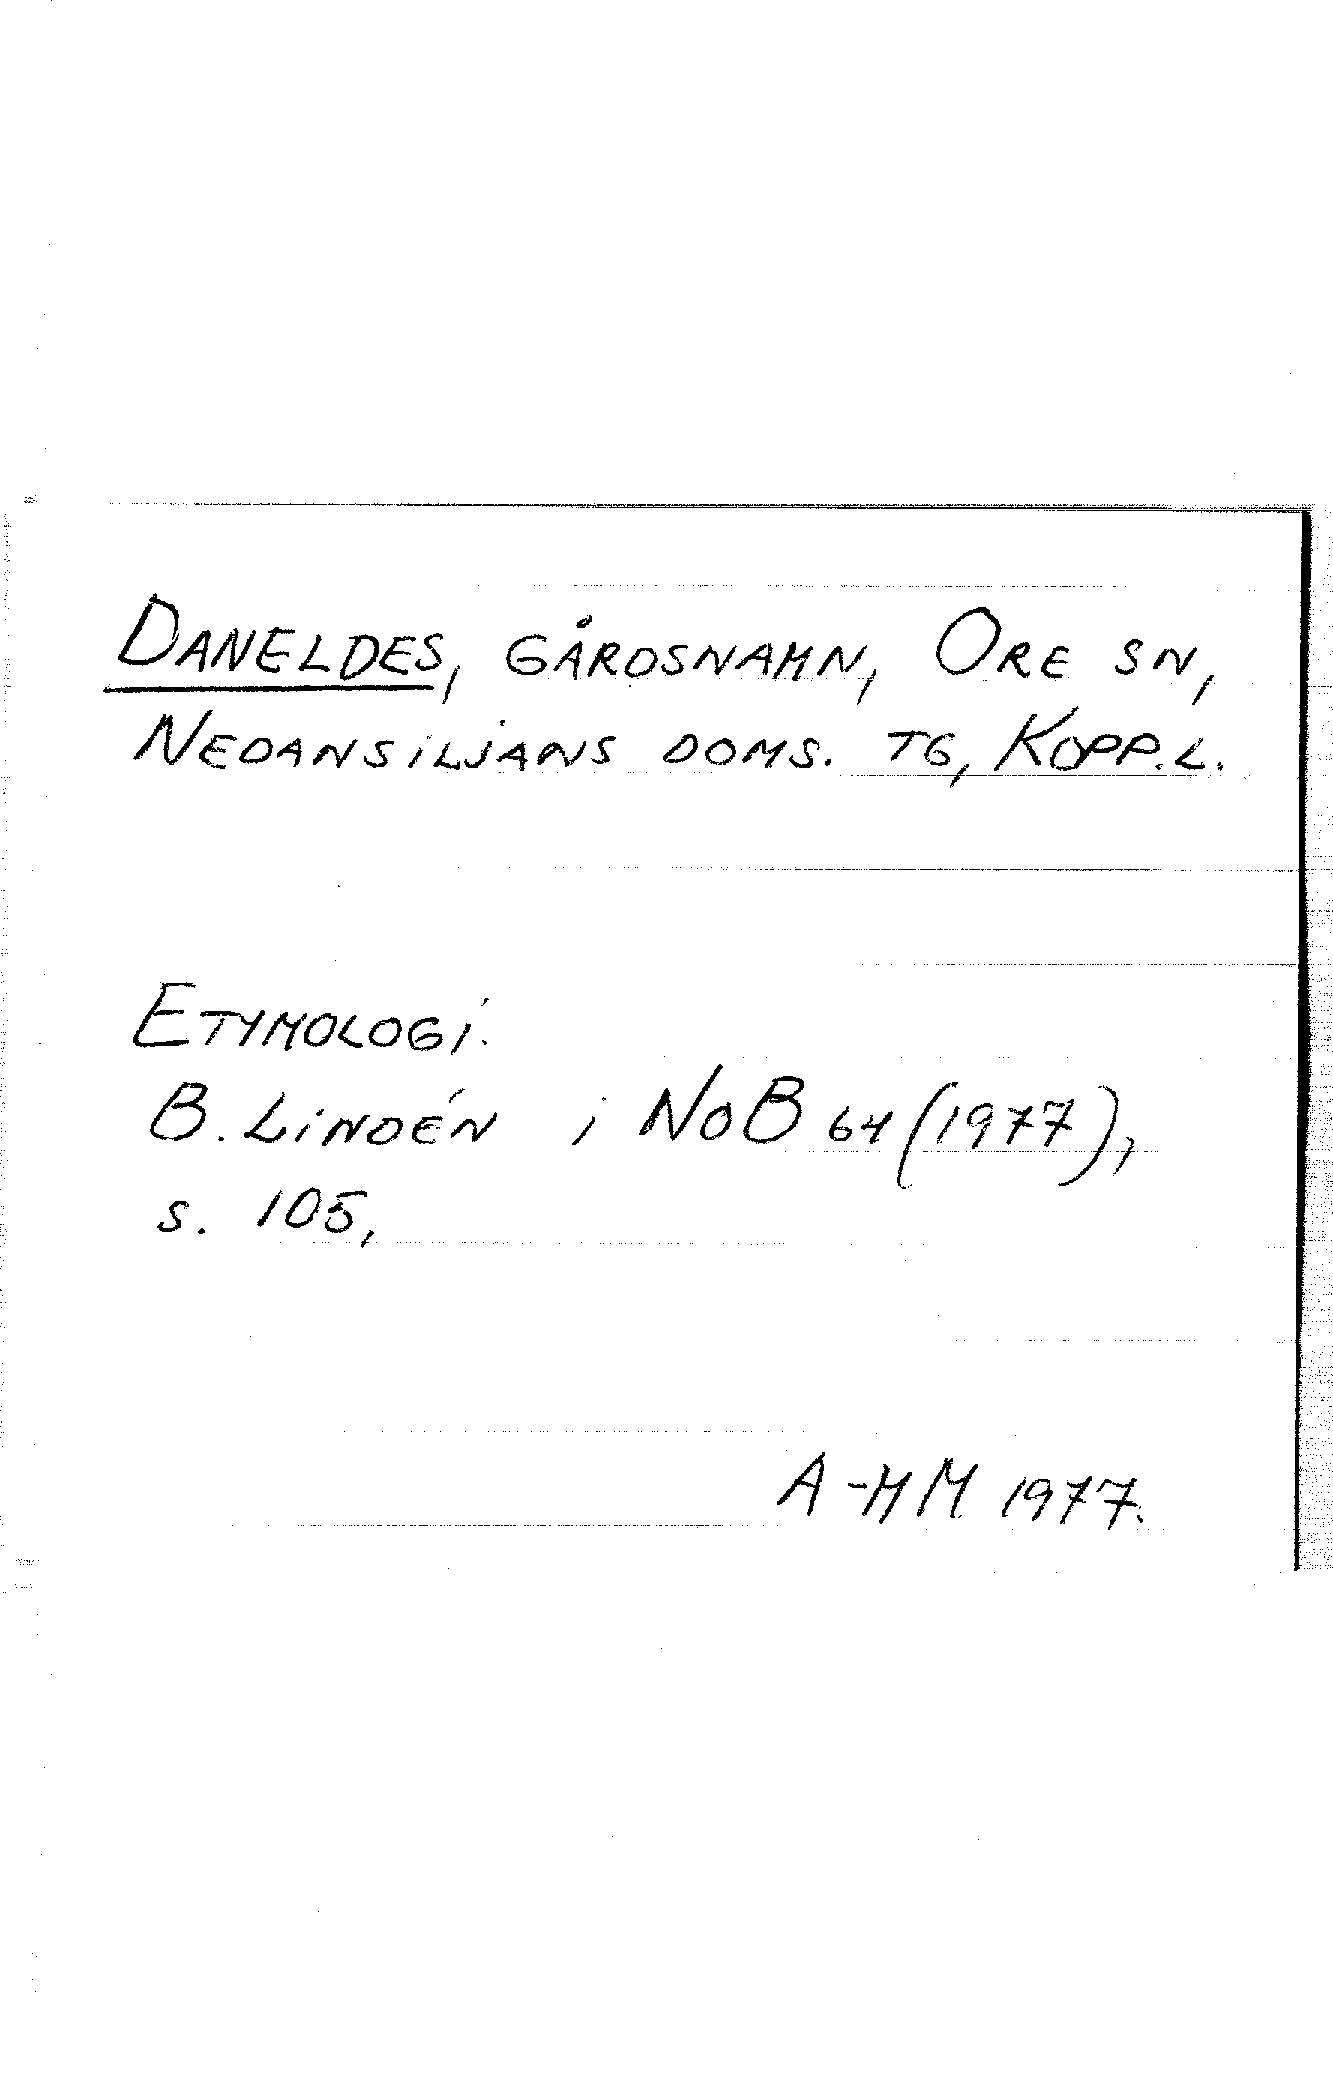 DANELDES, GÅRDSNAMN, ORE SN,
NEDANSILJANS DOMS. TG, KOPP. L.
ETYMOLOGI.
B. LINDÉN i NoB 64 (1977),
s. 105,
A-MM 1977.